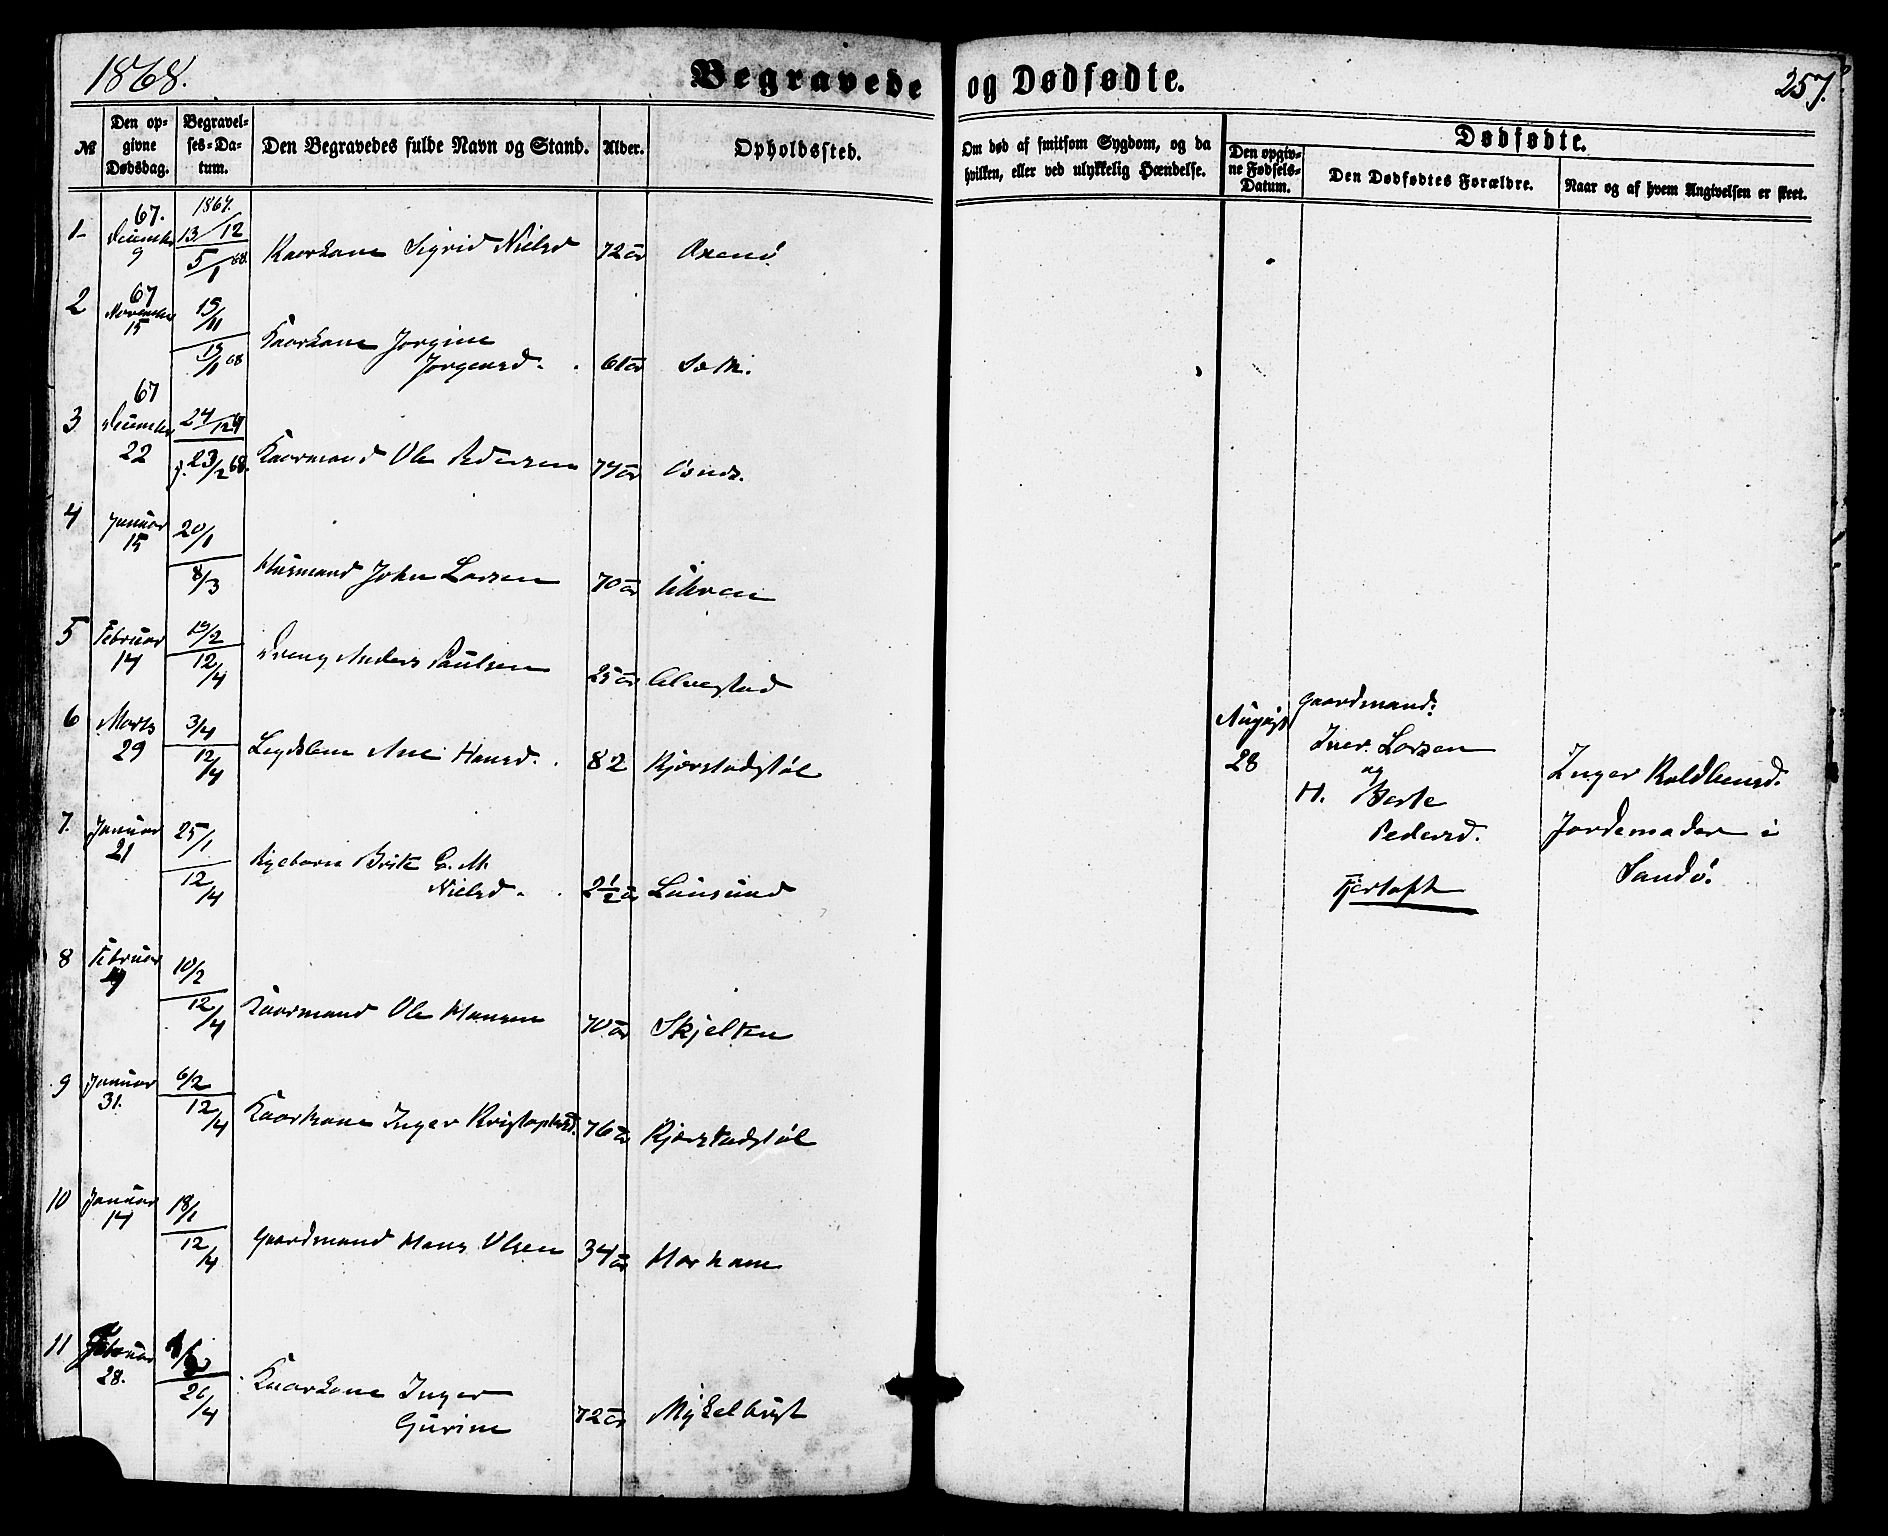 1868.
Begravede og Dødfødte.
257.
№
Den opgivne Dødsdag.
Begravelses-Datum.
Den Begravedes fulde Navn og Stand.
Alder.
Opholdssted.
Om død af smitsom Sygdom, og da hvilken, eller ved ulykkelig Hændelse.
Dødfødte.
Den opgivne Fødsels-Datum.
Den Dødfødtes Forældre.
Naar og af hvem Angivelsen er skeet.
1 67. December 9 1867. 13/12 5/1 68. Kaarkone Sigrid Nielsd 72 aar
2 67 November 15 15/11 68 Kaarkone Jorgine
Jorgensd. 61 aar Søvik.
3 67 December 22 24/12 67 j. 23/2 68. Kaarmand Ole Pedersen 74 aar
4 Januar 15 20/1 8/3 Husmand John Larsen 70 aar Ulvøen
5 Februar 14 19/2 12/4 Dreng Anders Paulsen 25 aar Alvestad
6 Marts 29 3/4 12/4 Legdslem Ane Hansd. 82 Kjerstadstøl
7. Januar 21 25/1 12/4 Pigebarn Brite G. M.
Nielsd. 2½ aar Lausund
8 Februar 10/2 12/4 Kaarmand Ole Hansen 70 aar Skjelten
9 Januar 31. 6/2 12/4 Kaarkone Inger Kristophersd. 76 aar Kjerstadstøl
10 Januar 14 18/1 12/4 Gaardmand Hans Olsen 34 aar Harham
11 Februar 28. 26/4 Kaarkone Inger
Gurine 72 aar Myklebust
August 28
Gaardmand:
Iver Larsen
og
H. Berte
Pedersd.
Fjertoft
Inger Roldhansd.
Jordemoder i
Sandø.